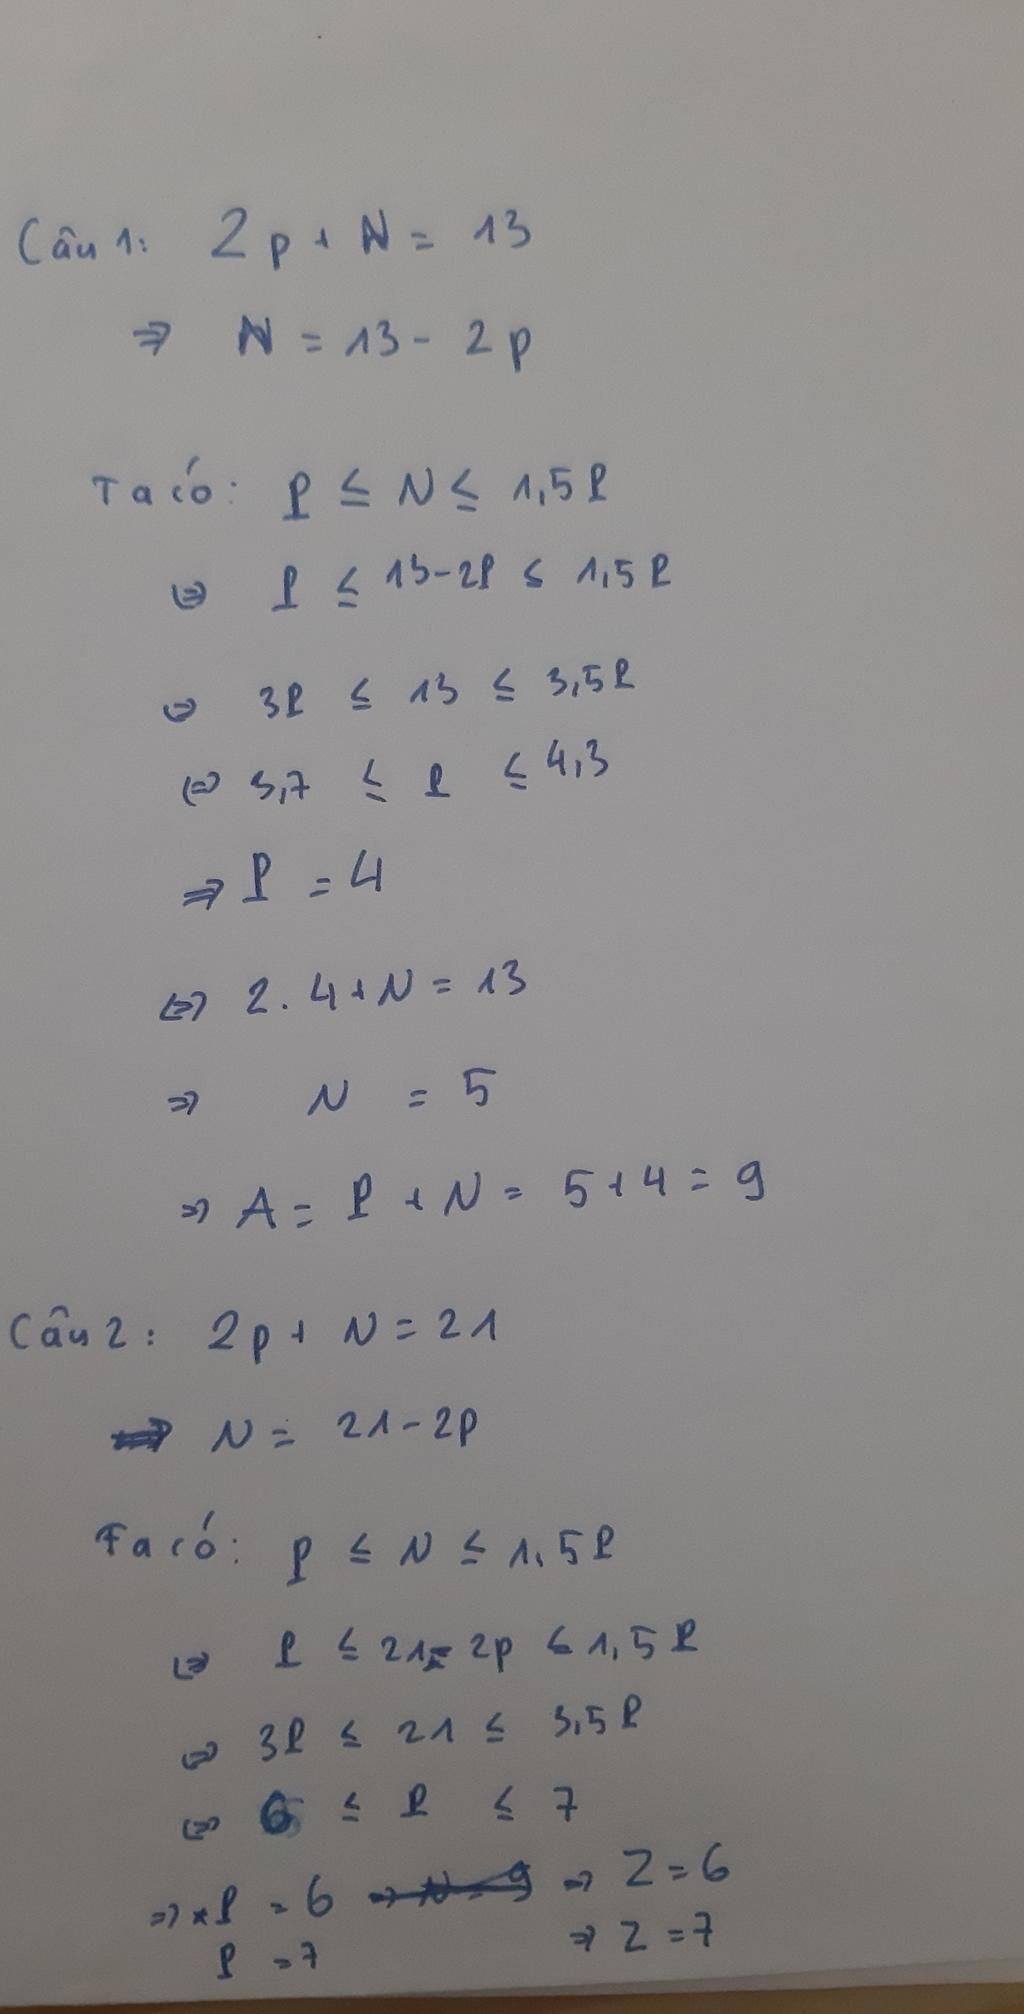 Câu 1: 2p + N = 13
⇒ N = 13 - 2p
Ta có: P ≤ N ≤ 1,5P
⇔ P ≤ 13-2P ≤ 1,5P
⇔ 3P ≤ 13 ≤ 3,5P
⇔ 3,7 ≤ P ≤ 4,3
⇒ P = 4
⇔ 2. 4 + N = 13
⇒ N = 5
⇒ A = P + N = 5 + 4 = 9
Câu 2: 2p + N = 21
⇒ N = 21 - 2p
Ta có: P ≤ N ≤ 1,5P
⇔ P ≤ 21 - 2p ≤ 1,5P
⇔ 3P ≤ 21 ≤ 3,5P
⇔ 6 ≤ P ≤ 7
⇒ * P = 6 ⇒ Z = 6
P = 7 ⇒ Z = 7